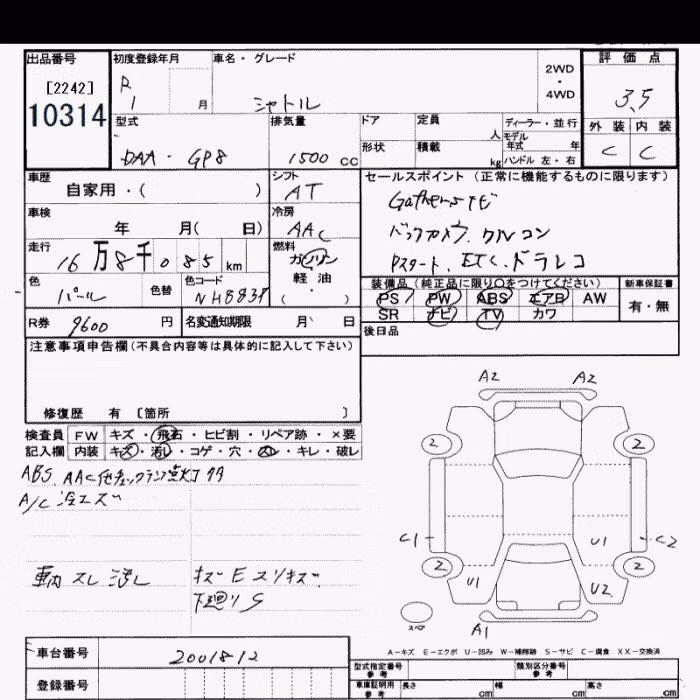 出品番号 初度登録年月 車名・グレード 2WD ・ 4WD 評価点
[2242] R 1 月 シャトル 3.5
10314 型式 排気量 ドア 定員 人 ディーラー・並行 外装 内装
モデル年式 年
DAA・GP8 1500 cc 形状 積載 kg ハンドル 左・右 C C
車歴 自家用・( ) シフト AT セールスポイント (正常に機能するものに限ります)
車検 年 月( 日) 冷房 AAC Gathers ナビ
走行 16万8千085 km 燃料 ガソリン 軽油 ・ ( ) バックカメラ. クルコン
Pスタート. ETC. ドラレコ
色 パール 色替 色コード NH883P
装備品 (純正品に限り○をつけてください) 新車保証書
PS PW ABS エアB AW 有・無
SR ナビ TV カワ
R券 9600 円 名変通知期限 月 日 後日品
注意事項申告欄(不具合内容等は具体的に記入して下さい)
修復歴 有 [箇所 ]
検査員 FW キズ・飛石・ヒビ割・リペア跡・×要
記入欄 内装 キズ・汚れ・コゲ・穴・スレ・キレ・破レ
A2 A2
2 2
ABS. AAC他チェックランプ点灯
A/C 冷エズ
C1 U1 C2
2 2
スレ 汚レ キズ E スリキズ
U1 U2
下廻り S
スペア A1
A-キズ E-エクボ U-凹み W-補修跡 S-サビ C-腐食 XX-交換済
車台番号 2001812
登録番号
型式指定番号 参考 類別区分番号 参考
車庫証明用 参考 長さ cm 幅 cm 高さ cm